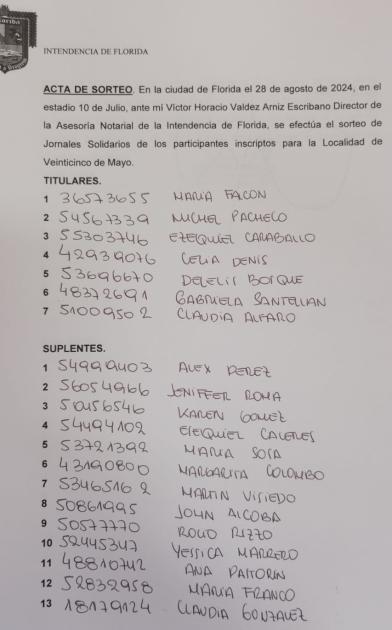 INTENDENCIA DE FLORIDA
ACTA DE SORTEO. En la ciudad de Florida el 28 de agosto de 2024, en el
estadio 10 de Julio, ante mi Víctor Horacio Valdez Arniz Escribano Director de
la Asesoría Notarial de la Intendencia de Florida, se efectúa el sorteo de
Jornales Solidarios de los participantes inscriptos para la Localidad de
Veinticinco de Mayo.
TITULARES.
1 36573655 MARIA FALCON
2 54567339 MICHEL PACHECO
3 55303746 EZEQUIEL CARABALLO
4 42939076 CELIA DENIS
5 53696670
6 48372691 GABRIELA SANTELLAN
7 51009502 CLAUDIA ALFARO
SUPLENTES.
1 54999403 ALEX PEREZ
2 56054966 JENIFFER ROMA
3 50156546 KAREN GOMEZ
4 54494102 EZEQUIEL CACERES
5 53721392 MARIA SOSA
6 43190800 MARGARITA COLOMBO
7 53465162 MARTIN
8 50861995 JOHN ALCOBA
9 50577770 ROCIO RIZZO
10 52445347 YESSICA MARRERO
11 48810742 ANA PASTORIN
12 52832958 MARIA FRANCO
13 18179124 CLAUDIA GONZALEZ